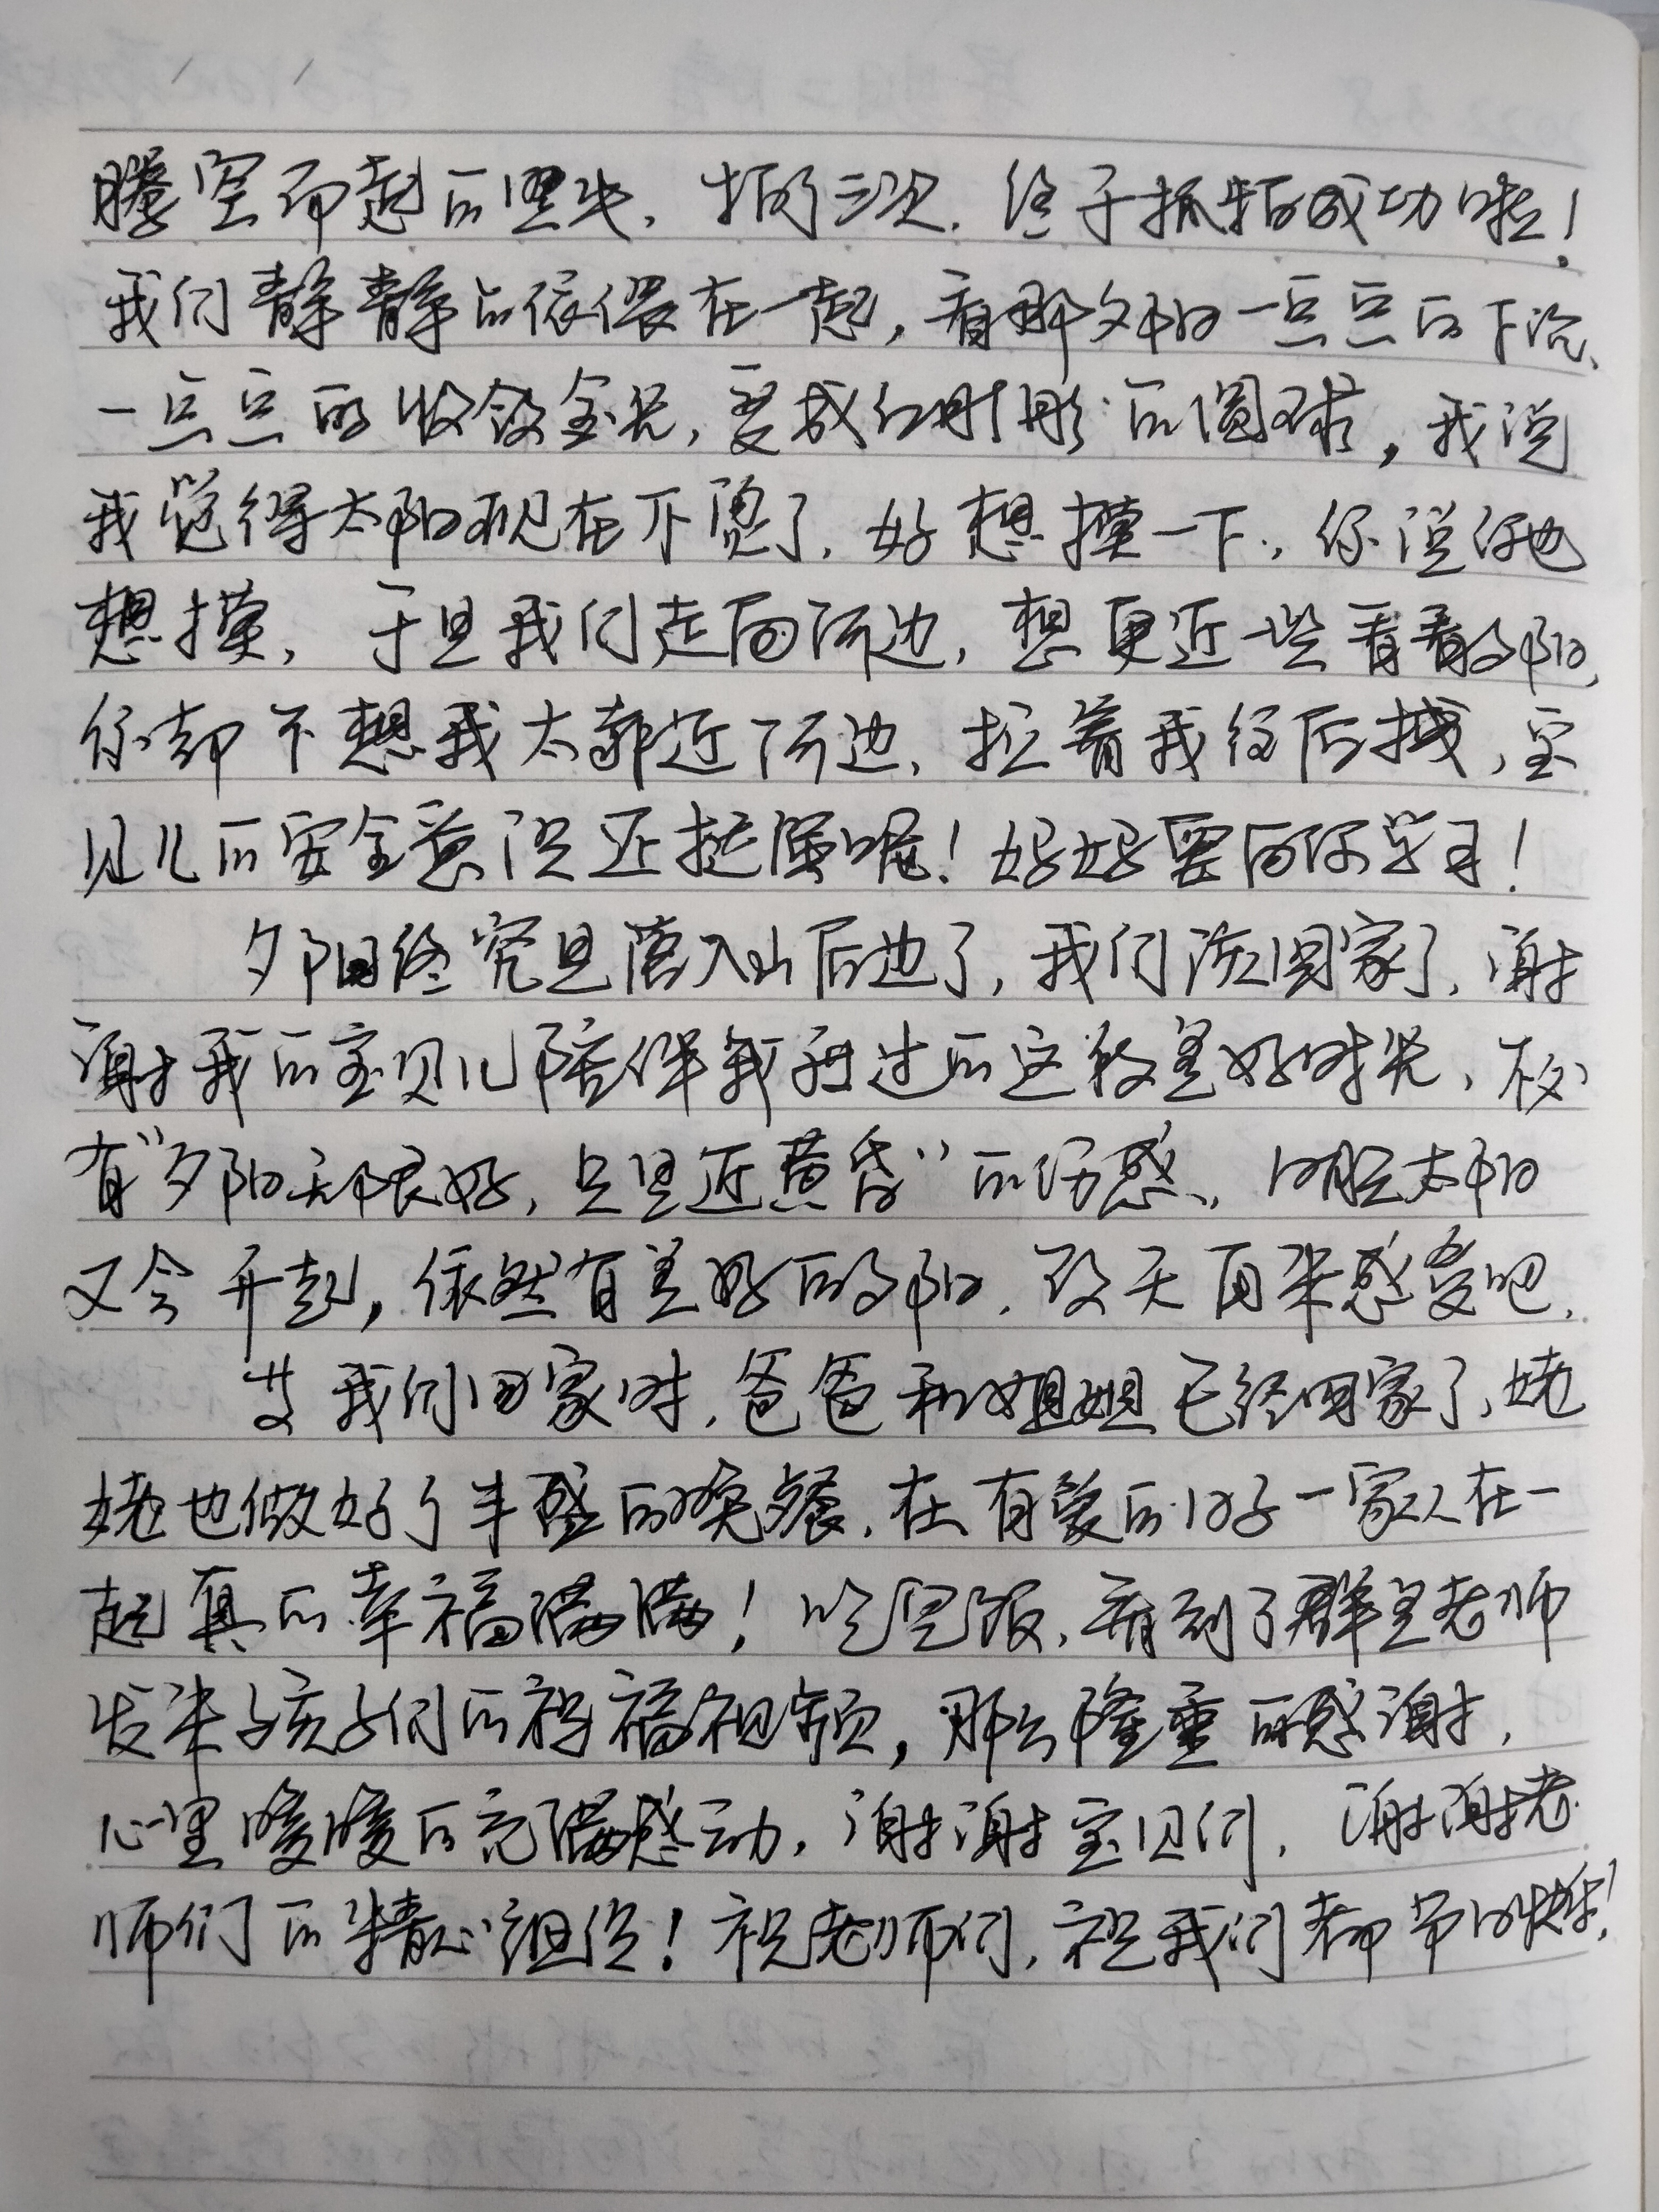 腾空而起的黑发，拍了三次，终于抓拍成功啦！
我们静静的依偎在一起，看那夕阳一点点的下沉、
一点点的收敛金光，变成红彤彤的圆球，我说
我觉得太阳现在不烫了，好想摸一下，你说你也
想摸，于是我们走向河边，想更近一些看看夕阳，
你却不想我太靠近河边，拉着我往后拽，宝
贝儿的安全意识还挺强呢！妈妈要向你学习！
夕阳终究是落入山后边了，我们该回家了，谢
谢我的宝贝儿陪伴我度过的这段美好时光，不必
有“夕阳无限好，只是近黄昏”的伤感，明晚太阳
又会升起，依然有美好的夕阳，改天再来感受吧，
等我们回家时，爸爸和姐姐已经回家了，姥
姥也做好了丰盛的晚餐，在有爱的日子一家人在一
起真的幸福满满！吃完饭，看到了群里老师
发来孩子们的祝福视频，那么隆重的感谢，
心里暖暖的充满感动，谢谢宝贝们，谢谢老
师们的精心组织！祝老师们，祝我们都节日快乐！